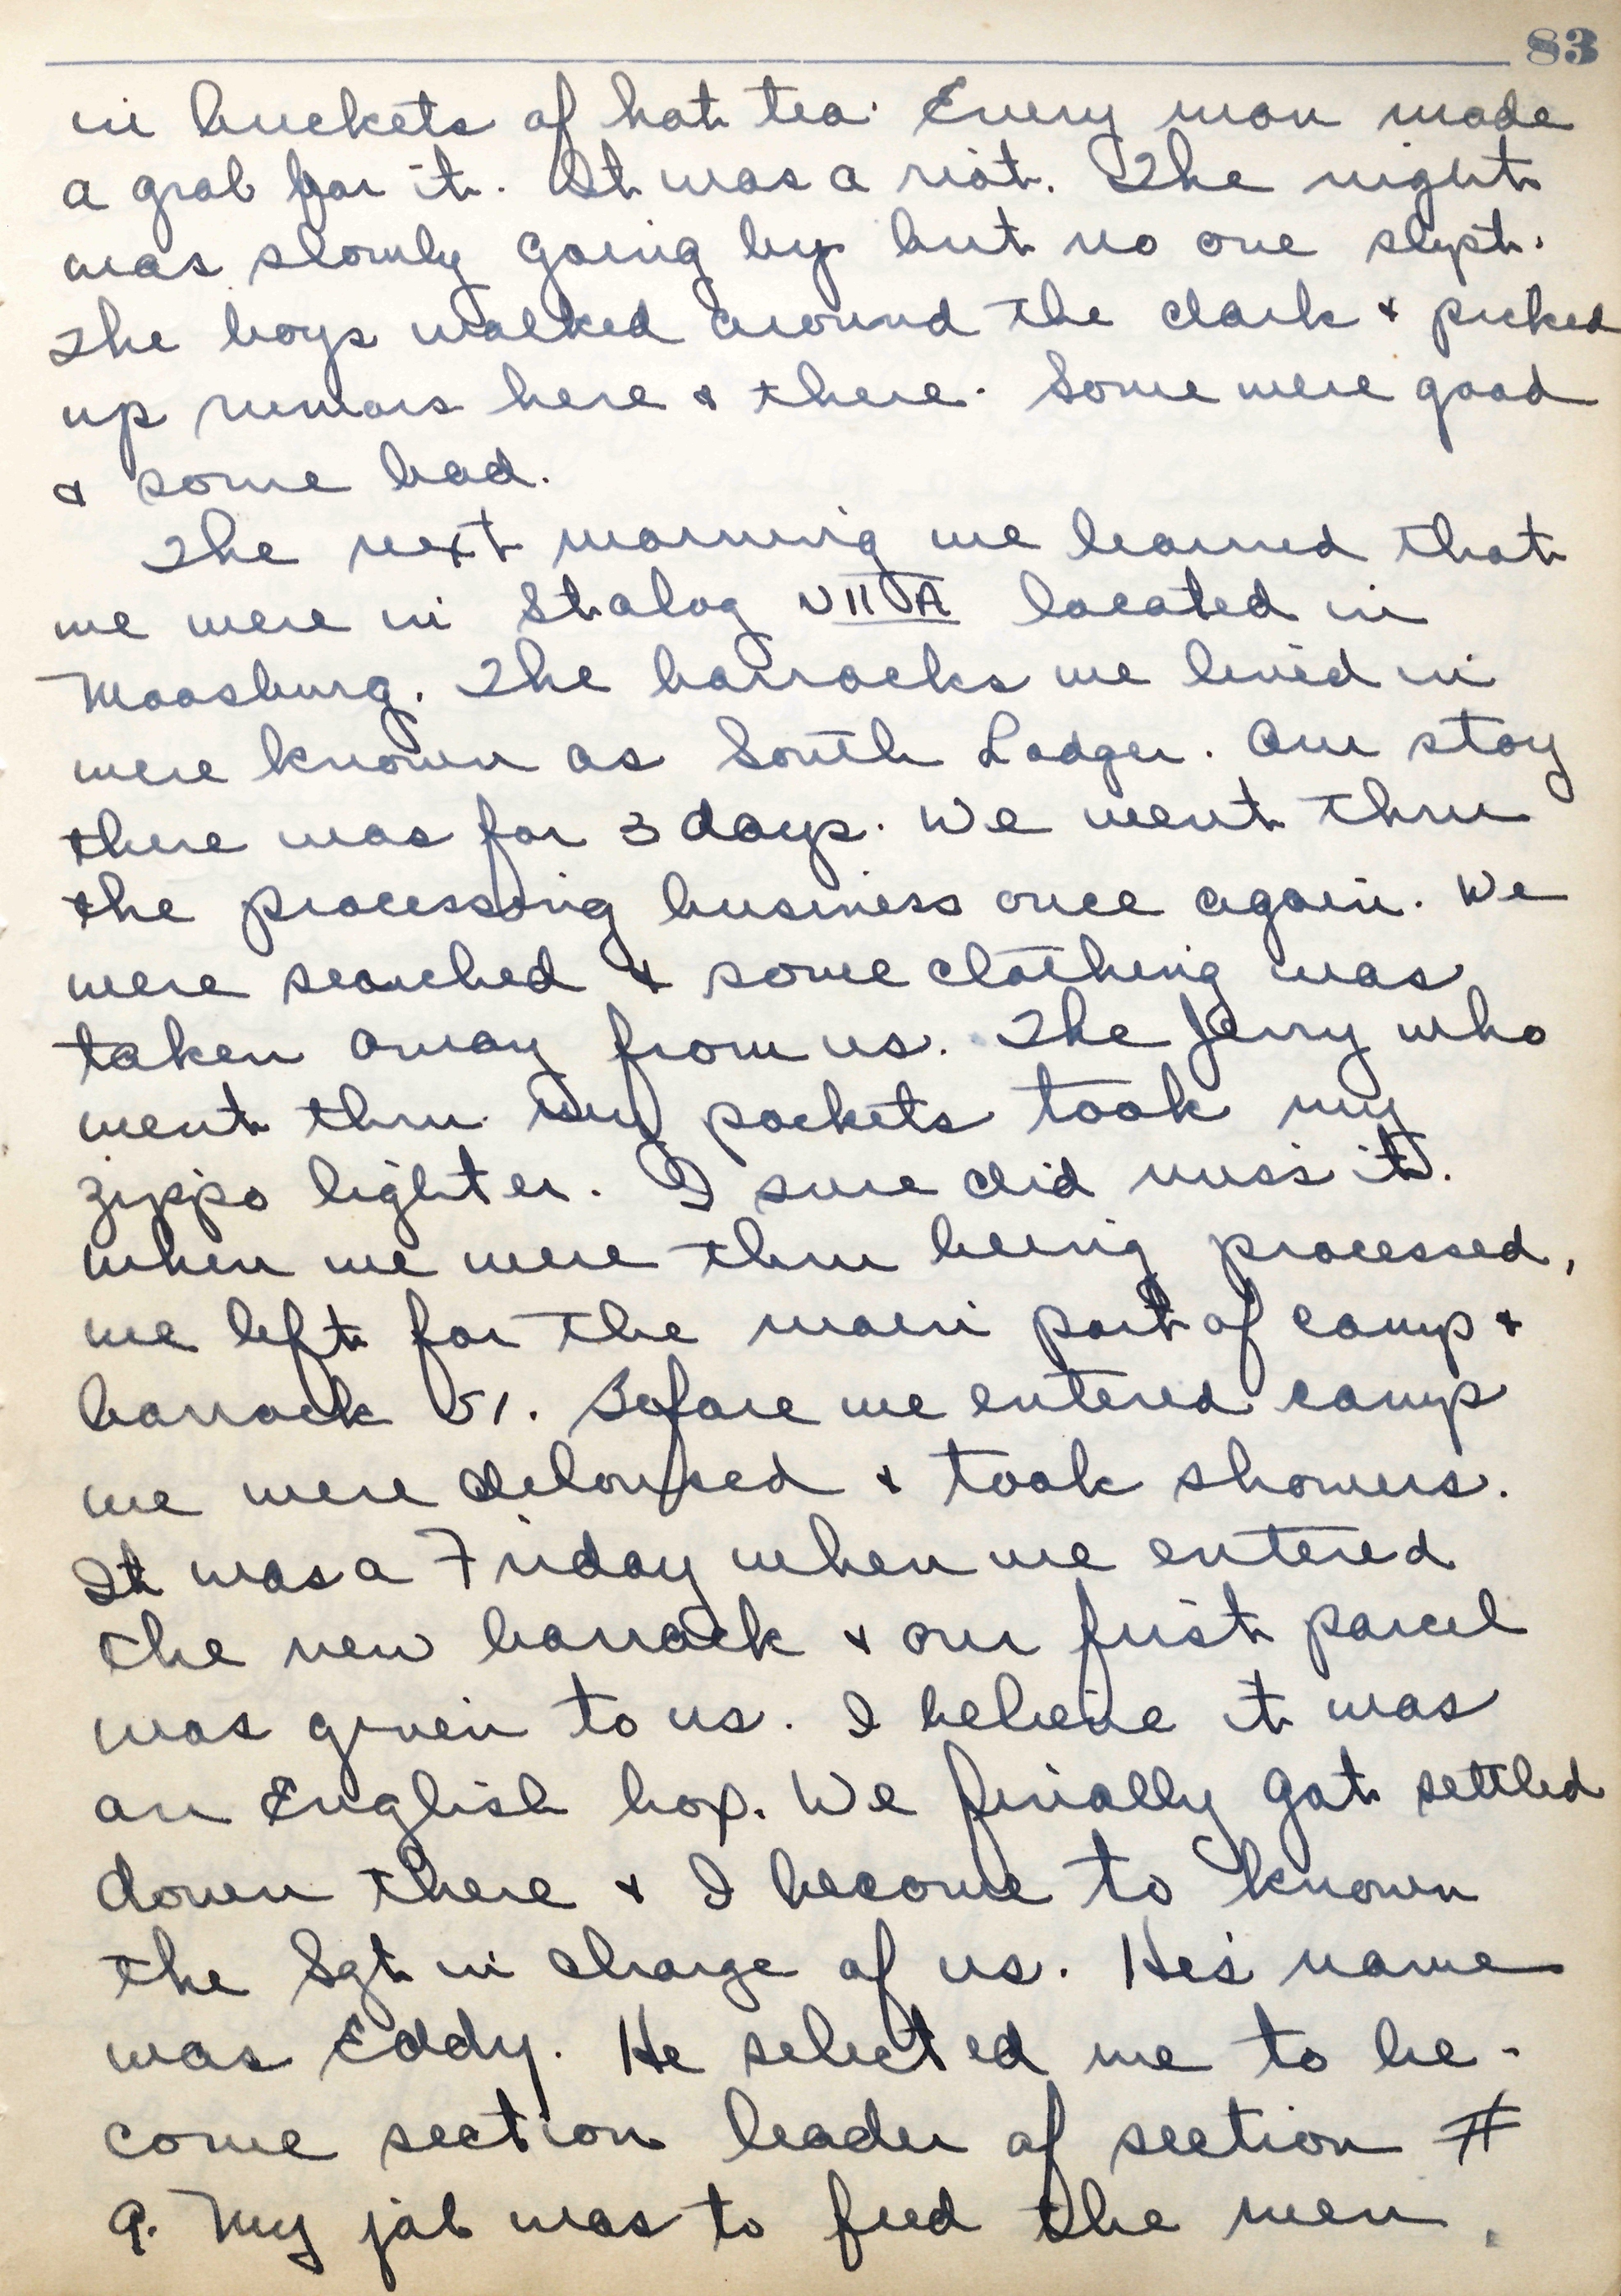 83
in buckets of hot tea. Every man made
a grab for it. It was a riot. The night
was slowly going by but no one slept.
The boys walked around the dark & picked
up rumors here & there. Some were good
& some bad.
The next morning we learned that
we were in Stalag VIIA located in
Moosburg. The barracks we lived in
were known as South Lodger. Our stay
there was for 3 days. We went thru
the processing business once again. We
were searched & some clothing was
taken away from us. The Jerry who
went thru my pockets took my
zippo lighter. I sure did miss it.
When we were thru being processed,
we left for the main part of camp &
barrack 51. Before we entered camp
we were deloused & took showers.
It was a Friday when we entered
the new barrack & our first parcel
was given to us. I believe it was
an English box. We finally got settled
down there & I become to known
the Sgt in charge of us. He's name
was Eddy. He selected me to be-
come section leader of section #
9. My job was to feed the men.